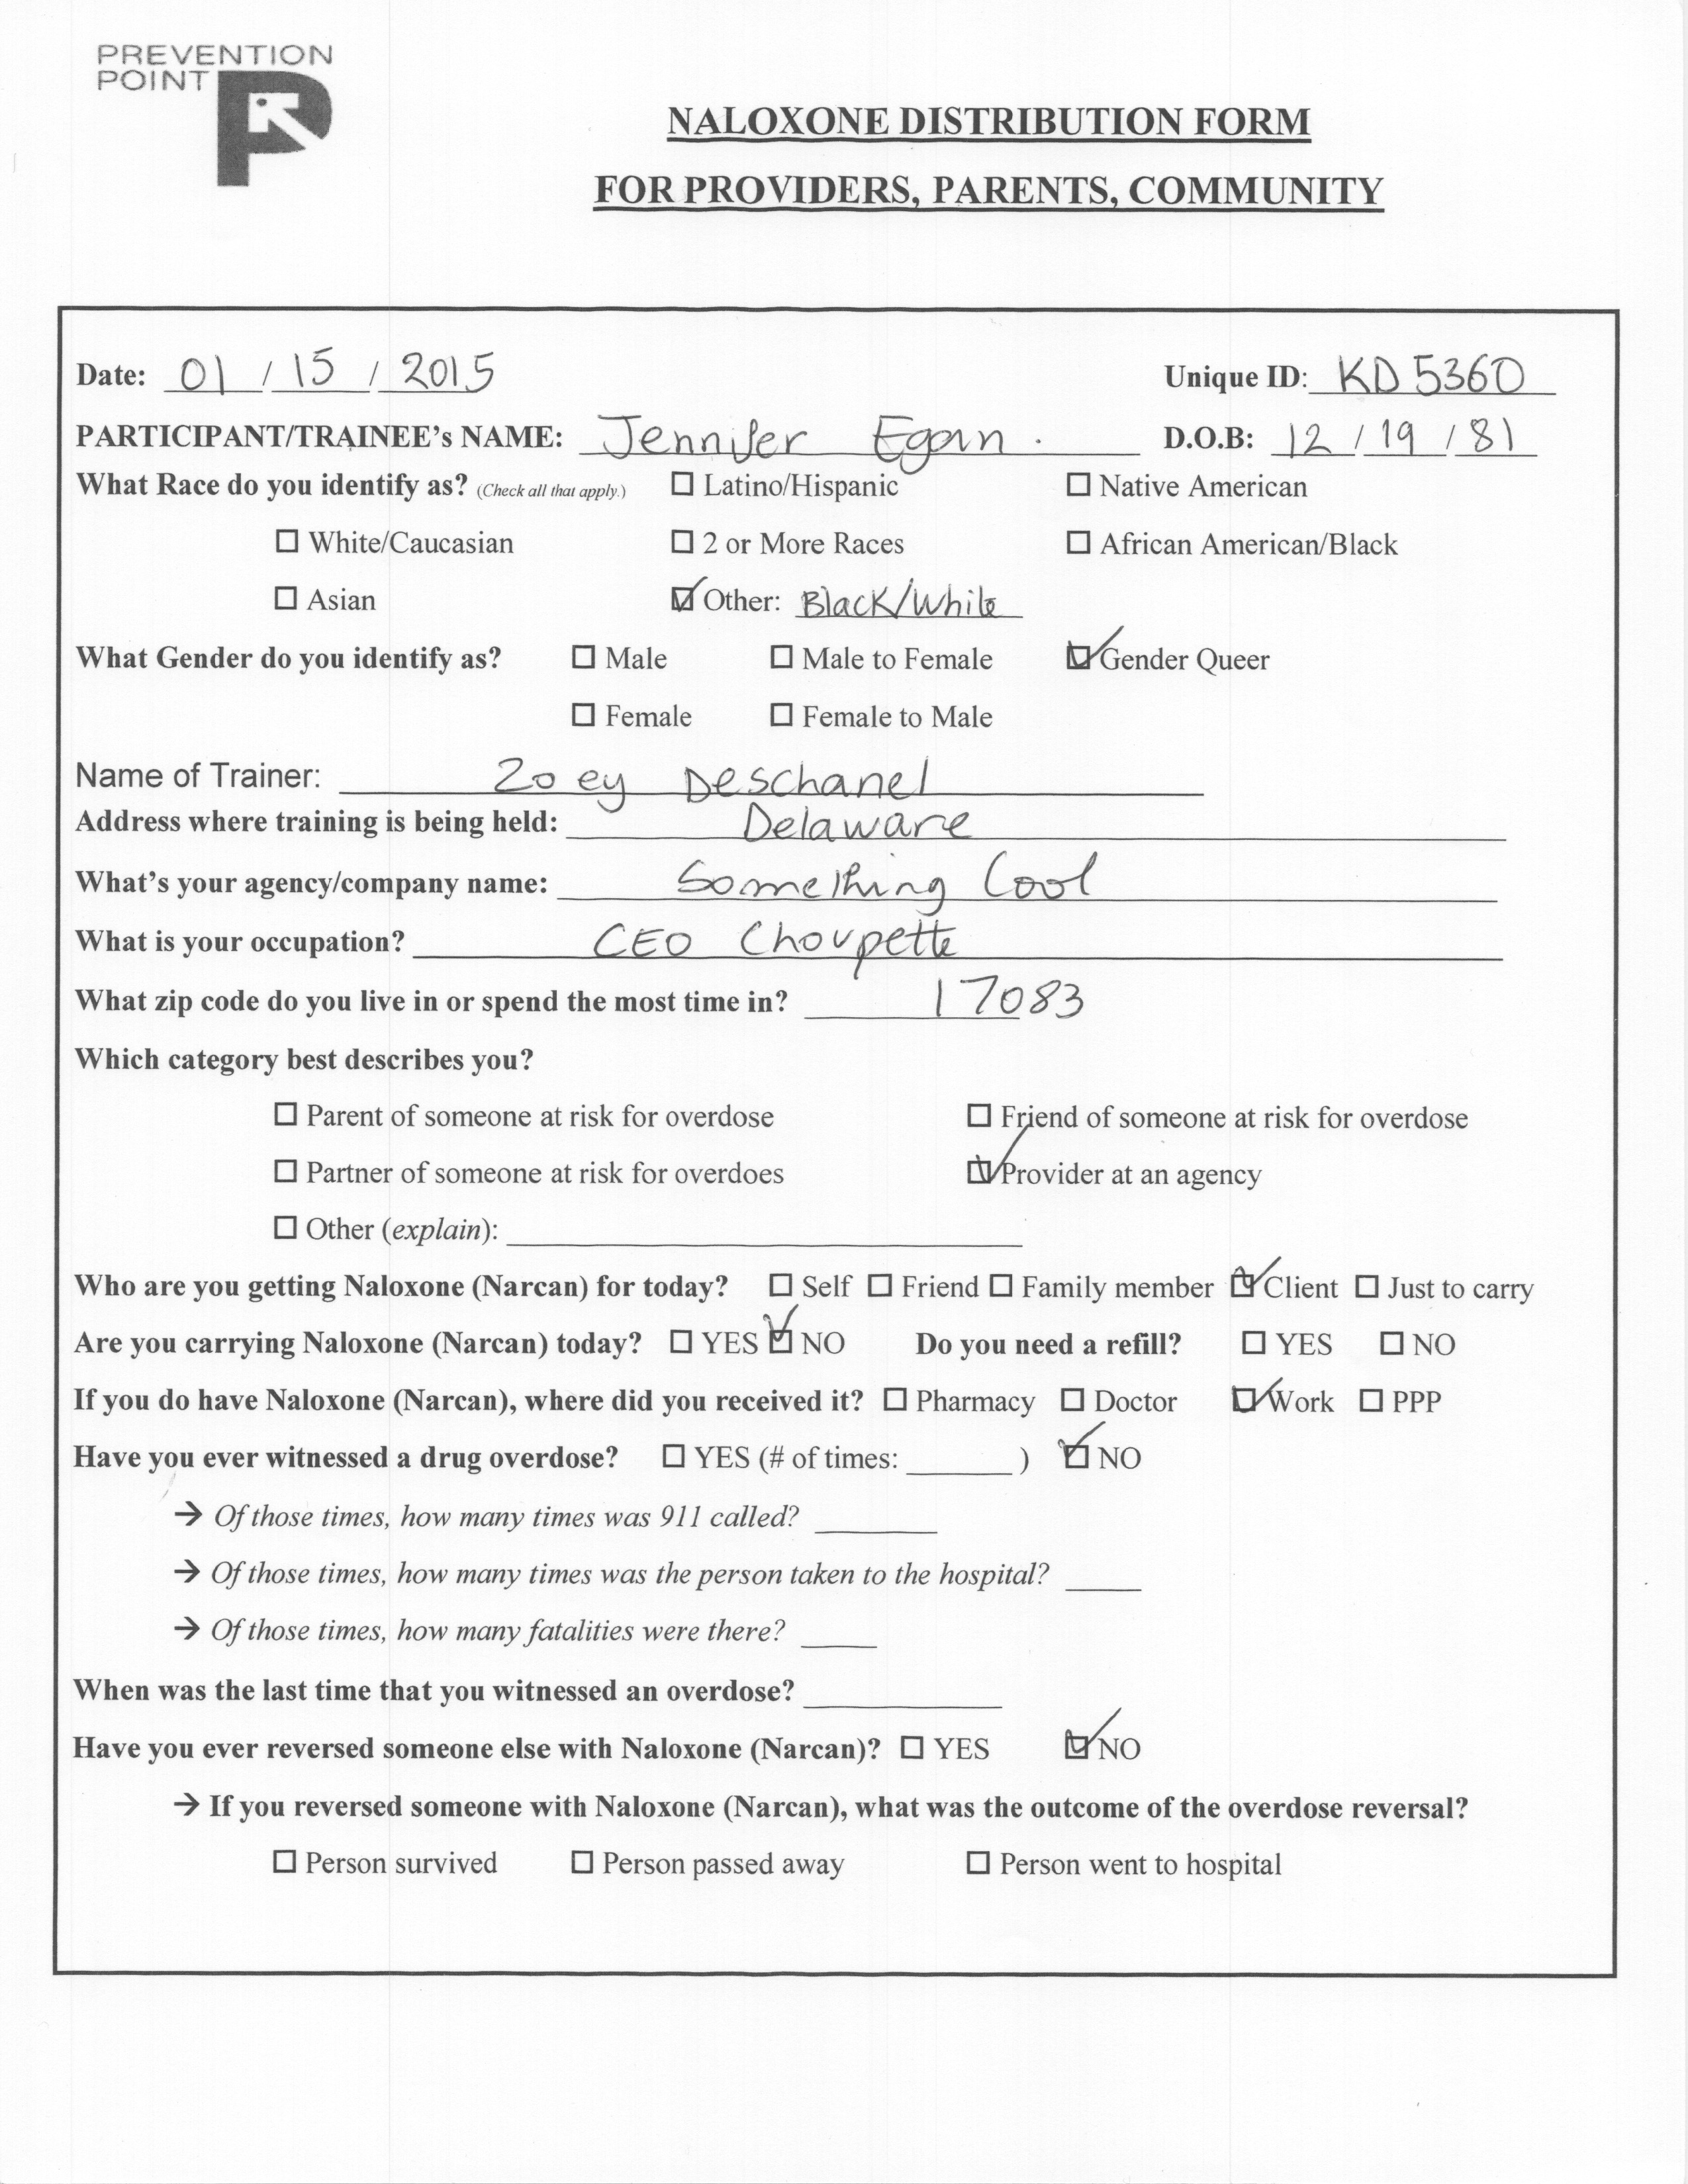 PREVENTION
POINT
NALOXONE DISTRIBUTION FORM
FOR PROVIDERS, PARENTS, COMMUNITY
Date: 01 / 15 / 2015 Unique ID: KD5360
PARTICIPANT/TRAINEE's NAME: Jennifer Egan. D.O.B: 12 / 19 / 81
What Race do you identify as? (Check all that apply.) ☐ Latino/Hispanic ☐ Native American
☐ White/Caucasian ☐ 2 or More Races ☐ African American/Black
☐ Asian ☑ Other: Black/White
What Gender do you identify as? ☐ Male ☐ Male to Female ☑ Gender Queer
☐ Female ☐ Female to Male
Name of Trainer: Zoey Deschanel
Address where training is being held: Delaware
What's your agency/company name: Something Cool
What is your occupation? CEO Choupette
What zip code do you live in or spend the most time in? 17083
Which category best describes you?
☐ Parent of someone at risk for overdose ☐ Friend of someone at risk for overdose
☐ Partner of someone at risk for overdoes ☑ Provider at an agency
☐ Other (explain):
Who are you getting Naloxone (Narcan) for today? ☐ Self ☐ Friend ☐ Family member ☑ Client ☐ Just to carry
Are you carrying Naloxone (Narcan) today? ☐ YES ☑ NO Do you need a refill? ☐ YES ☐ NO
If you do have Naloxone (Narcan), where did you received it? ☐ Pharmacy ☐ Doctor ☑ Work ☐ PPP
Have you ever witnessed a drug overdose? ☐ YES (# of times: ) ☑ NO
→ Of those times, how many times was 911 called?
→ Of those times, how many times was the person taken to the hospital?
→ Of those times, how many fatalities were there?
When was the last time that you witnessed an overdose?
Have you ever reversed someone else with Naloxone (Narcan)? ☐ YES ☑ NO
→ If you reversed someone with Naloxone (Narcan), what was the outcome of the overdose reversal?
☐ Person survived ☐ Person passed away ☐ Person went to hospital